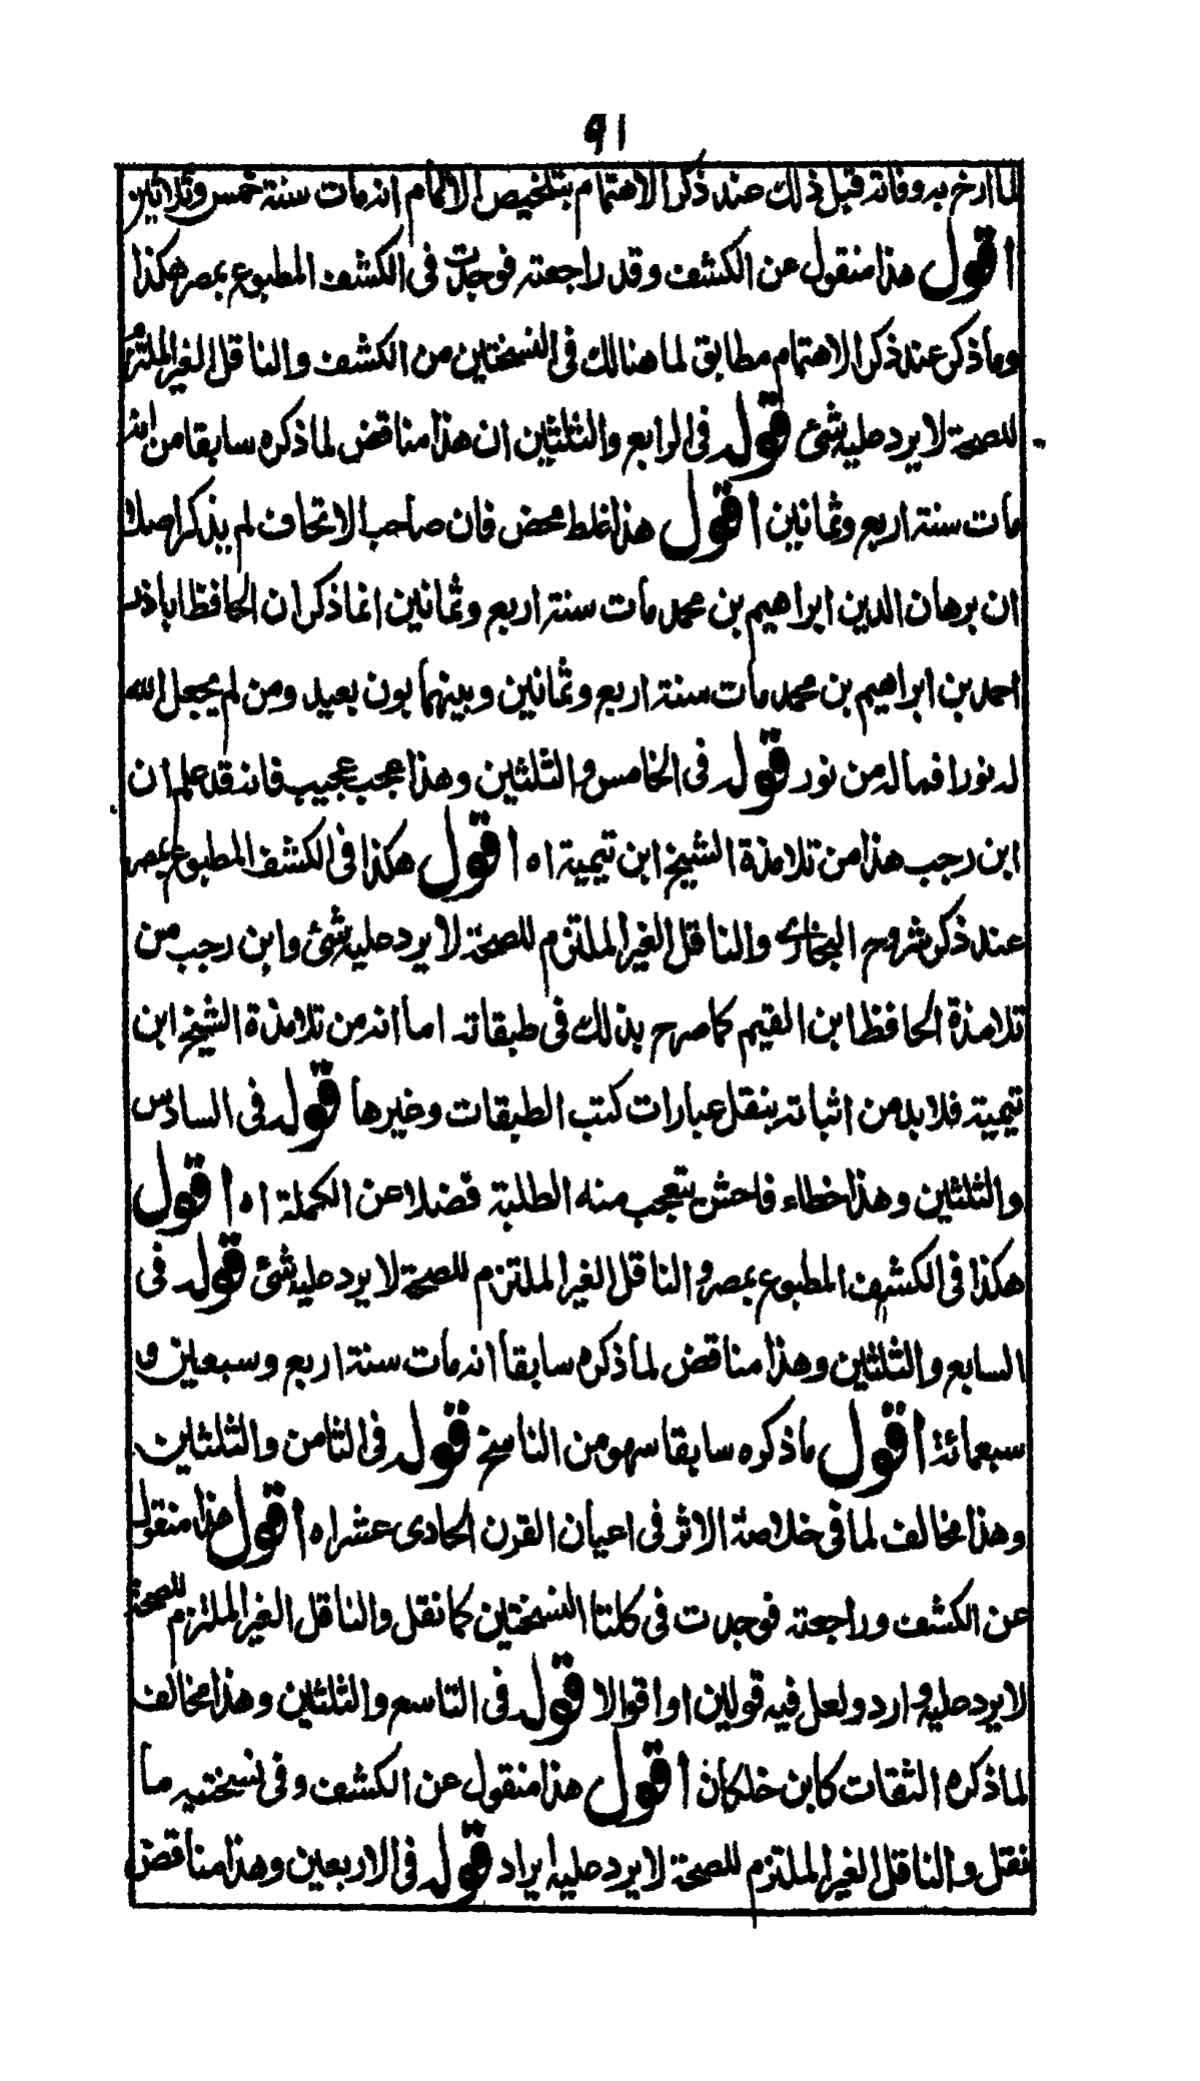 ٩١
لما ارخ به وفاته قبل ذلك عند ذكر الاهتمام بتلخيص الالمام انه مات سنة خمس وثلاثين
اقول هذا منقول عن الكشف وقد راجعته فوجدت فى الكشف المطبوع بمصر هكذا
وما ذكر عند ذكر الاهتمام مطابق لما هنالك فى النسختين من الكشف والناقل الغير الملتزم
للصحة لا يرد عليه شئ قوله فى الرابع والثلثين ان هذا مناقض لما ذكره سابقا من انه
مات سنة اربع وثمانين اقول هذا غلط محض فان صاحب الاتحاف لم يذكر اصلا
ان برهان الدين ابراهيم بن محمد مات سنة اربع وثمانين انما ذكر ان الحافظ اباذر
احمد بن ابراهيم بن محمد مات سنة اربع وثمانين وبينهما بون بعيد ومن لم يجعل الله
له نورا فماله من نور قوله فى الخامس والثلثين وهذا عجب عجيب فانه قد علم ان
ابن رجب هذا من تلامذة الشيخ ابن تيمية اه اقول هكذا فى الكشف المطبوع بمصر
عند ذكر شروح البخارى والناقل الغير الملتزم للصحة لا يرد عليه شئ وابن رجب من
تلامذة الحافظ ابن القيم كما صرح بذلك فى طبقاته اما انه من تلامذة الشيخ ابن
تيمية فلا بد من اثباته بنقل عبارات كتب الطبقات وغيرها قوله فى السادس
والثلثين وهذا خطاء فاحش يتعجب منه الطلبة فضلا عن الكملة اه اقول
هكذا فى الكشف المطبوع بمصر و الناقل الغير الملتزم للصحة لا يرد عليه شئ قوله فى
السابع والثلثين وهذا مناقض لما ذكره سابقا انه مات سنة اربع وسبعين و
سبعمائة اقول ما ذكره سابقا سهو من الناسخ قوله فى الثامن والثلثين
وهذا مخالف لما فى خلاصة الاثر فى اعيان القرن الحادى عشر اه اقول هذا منقول
عن الكشف وراجعته فوجدت فى كلتا النسختين كما نقل والناقل الغير الملتزم للصحة
لا يرد عليه وارد ولعل فيه قولين او اقوالا قوله فى التاسع والثلثين وهذا مخالف
لما ذكره الثقات كابن خلكان اقول هذا منقول عن الكشف وفى نسختيه ما
نقل والناقل الغير الملتزم للصحة لا يرد عليه ايراد قوله فى الاربعين وهذا مناقض